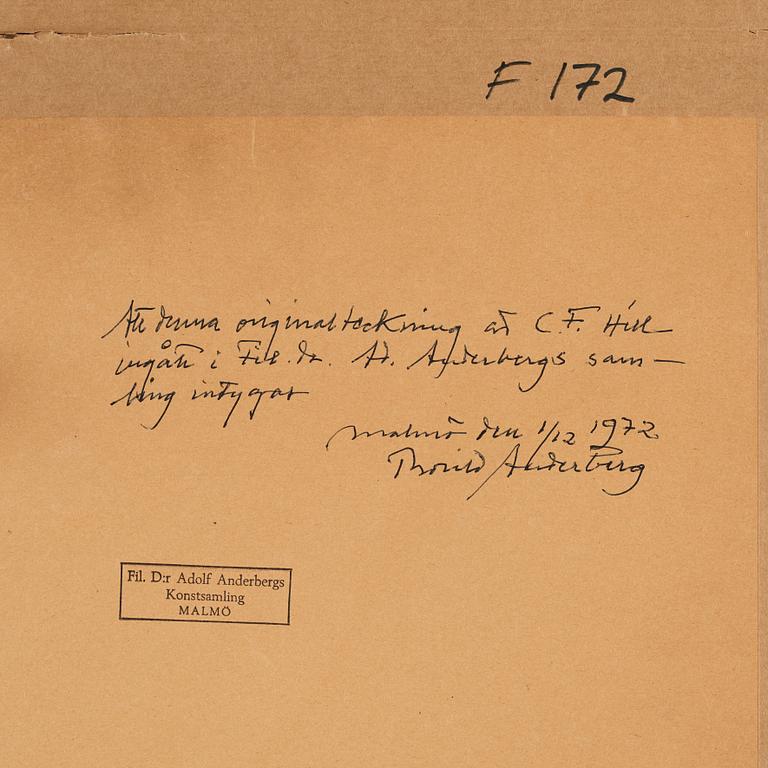 F 172
Att denna originalteckning av C.F. Hill
ingått i Fil. dr. Ad. Anderbergs sam—
ling intygar
Malmö den 1/12 1972
Thorild Anderberg
Fil. D:r Adolf Anderbergs
Konstsamling
MALMÖ